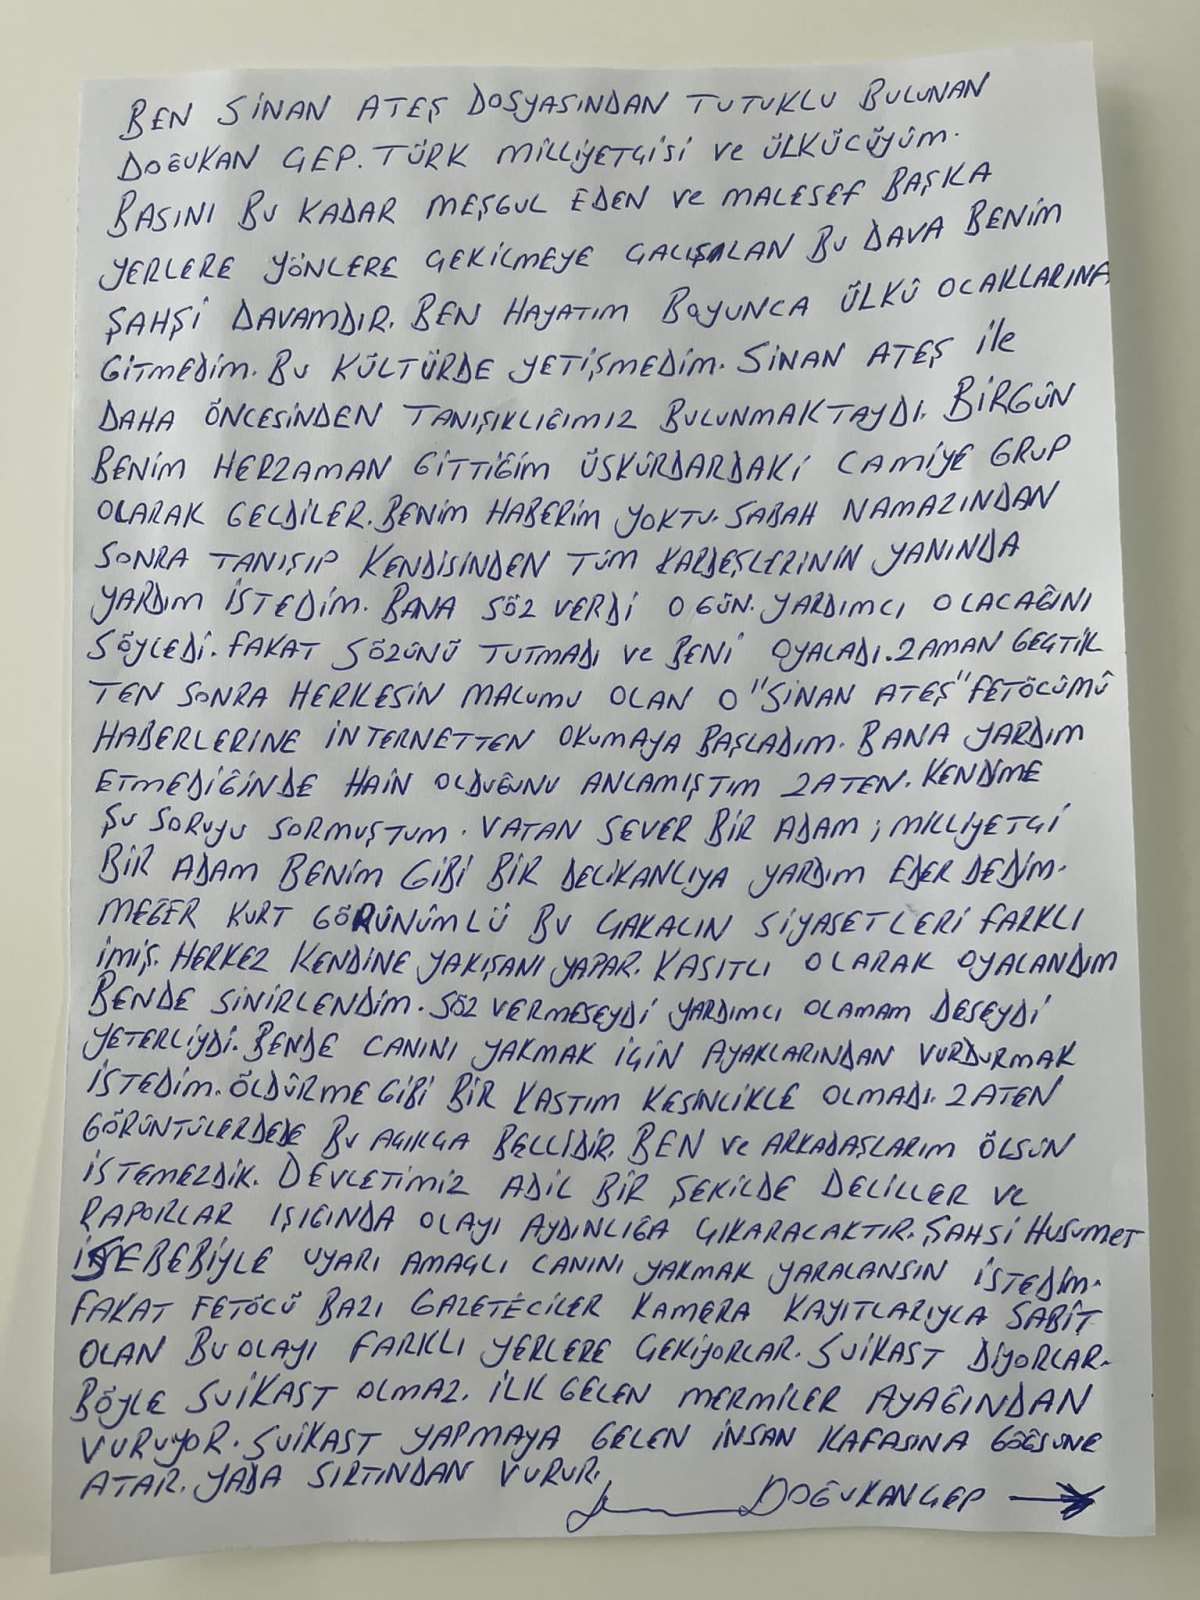 BEN SİNAN ATEŞ DOSYASINDAN TUTUKLU BULUNAN
DOĞUKAN ÇEP. TÜRK MİLLİYETÇİSİ ve ÜLKÜCÜYÜM.
BASINI BU KADAR MEŞGUL EDEN ve MALESEF BAŞKA
YERLERE YÖNLERE ÇEKİLMEYE ÇALIŞALAN BU DAVA BENİM
ŞAHŞİ DAVAMDIR. BEN HAYATIM BOYUNCA ÜLKÜ OCAKLARINA
GİTMEDİM. BU KÜLTÜRDE YETİŞMEDİM. SİNAN ATEŞ ile
DAHA ÖNCESİNDEN TANIŞIKLIĞIMIZ BULUNMAKTAYDI. BİRGÜN
BENİM HERZAMAN GİTTİĞİM ÜSKÜRDARDAKİ CAMİYE GRUP
OLARAK GELDİLER. BENİM HABERİM YOKTU. SABAH NAMAZINDAN
SONRA TANIŞIP KENDİSİNDEN TÜM KARDEŞLERİNİN YANINDA
YARDIM İSTEDİM. BANA SÖZ VERDİ O GÜN. YARDIMCI OLACAĞINI
SÖYLEDİ. FAKAT SÖZÜNÜ TUTMADI ve BENİ OYALADI. ZAMAN GEÇTİK
TEN SONRA HERKESİN MALUMU OLAN O "SİNAN ATEŞ" FETÖCÜMÜ
HABERLERİNE İNTERNETTEN OKUMAYA BAŞLADIM. BANA YARDIM
ETMEDİĞİNDE HAİN OLDUĞUNU ANLAMIŞTIM ZATEN. KENDİME
ŞU SORUYU SORMUŞTUM. VATAN SEVER BİR ADAM; MİLLİYETÇİ
BİR ADAM BENİM GİBİ BİR DELİKANLIYA YARDIM EDER DEDİM.
MEĞER KURT GÖRÜNÜMLÜ BU ÇAKALIN SİYASETLERİ FARKLI
İMİŞ. HERKEZ KENDİNE YAKIŞANI YAPAR. KASITLI OLARAK OYALANDIM
BENDE SİNİRLENDİM. SÖZ VERMESEYDİ YARDIMCI OLAMAM DESEYDİ
YETERLİYDİ. BENDE CANINI YAKMAK İÇİN AYAKLARINDAN VURDURMAK
İSTEDİM. ÖLDÜRME GİBİ BİR KASTIM KESİNLİKLE OLMADI. ZATEN
GÖRÜNTÜLERDEDE BU AÇIKÇA BELLİDİR. BEN ve ARKADAŞLARIM ÖLSÜN
İSTEMEZDİK. DEVLETİMİZ ADİL BİR ŞEKİLDE DELİLLER ve
RAPORLAR IŞIĞINDA OLAYI AYDINLIĞA ÇIKARALAKTIR. ŞAHSİ HUSUMET
SEBEBİYLE UYARI AMAÇLI CANINI YAKMAK YARALANSIN İSTEDİM.
FAKAT FETÖCÜ BAZI GAZETECİLER KAMERA KAYITLARIYLA SABİT
OLAN BU OLAYI FARKLI YERLERE ÇEKİYORLAR. SUİKAST DİYORLAR.
BÖYLE SUİKAST OLMAZ. İLK GELEN MERMİLER AYAĞINDAN
VURUYOR. SUİKAST YAPMAYA GELEN İNSAN KAFASINA GÖĞSÜNE
ATAR. YADA SIRTINDAN VURUR.
DOĞUKAN ÇEP →